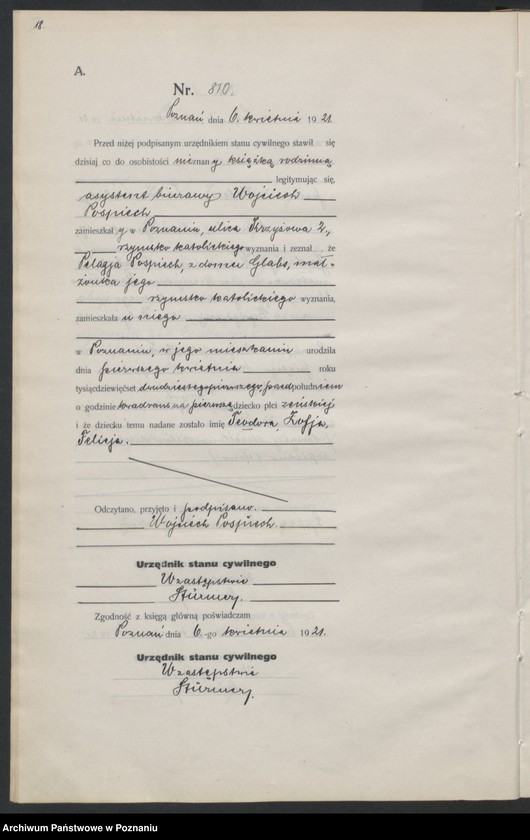 18.
A.
Nr. 810.
Poznań dnia 6. kwietnia 1921.
Przed niżej podpisanym urzędnikiem stanu cywilnego stawił się
dzisiaj co do osobistości nieznany książką rodzinną
legitymując się,
asystent biurowy Wojciech
Pospiech
zamieszkały w Poznaniu, ulica Krzyżowa 2,
rzymsko katolickiego wyznania i zeznał, że
Pelagja Pospiech, z domu Glabs, mał-
żonka jego
rzymsko katolickiego wyznania,
zamieszkała u niego
w Poznaniu, w jego mieszkaniu urodziła
dnia pierwszego kwietnia roku
tysiącdziewięćset dwudziestegopierwszego, przedpołudniem
o godzinie kwadrans na pierwszą dziecko płci żeńskiej
i że dziecku temu nadane zostało imię Teodora, Zofja,
Felicja.
Odczytano, przyjęto i podpisano.
Wojciech Pospiech.
Urzędnik stanu cywilnego
W zastępstwie
Stürmer.
Zgodność z księgą główną poświadczam
Poznań dnia 6.-go kwietnia 1921.
Urzędnik stanu cywilnego
W zastępstwie
Stürmer.
Archiwum Państwowe w Poznaniu